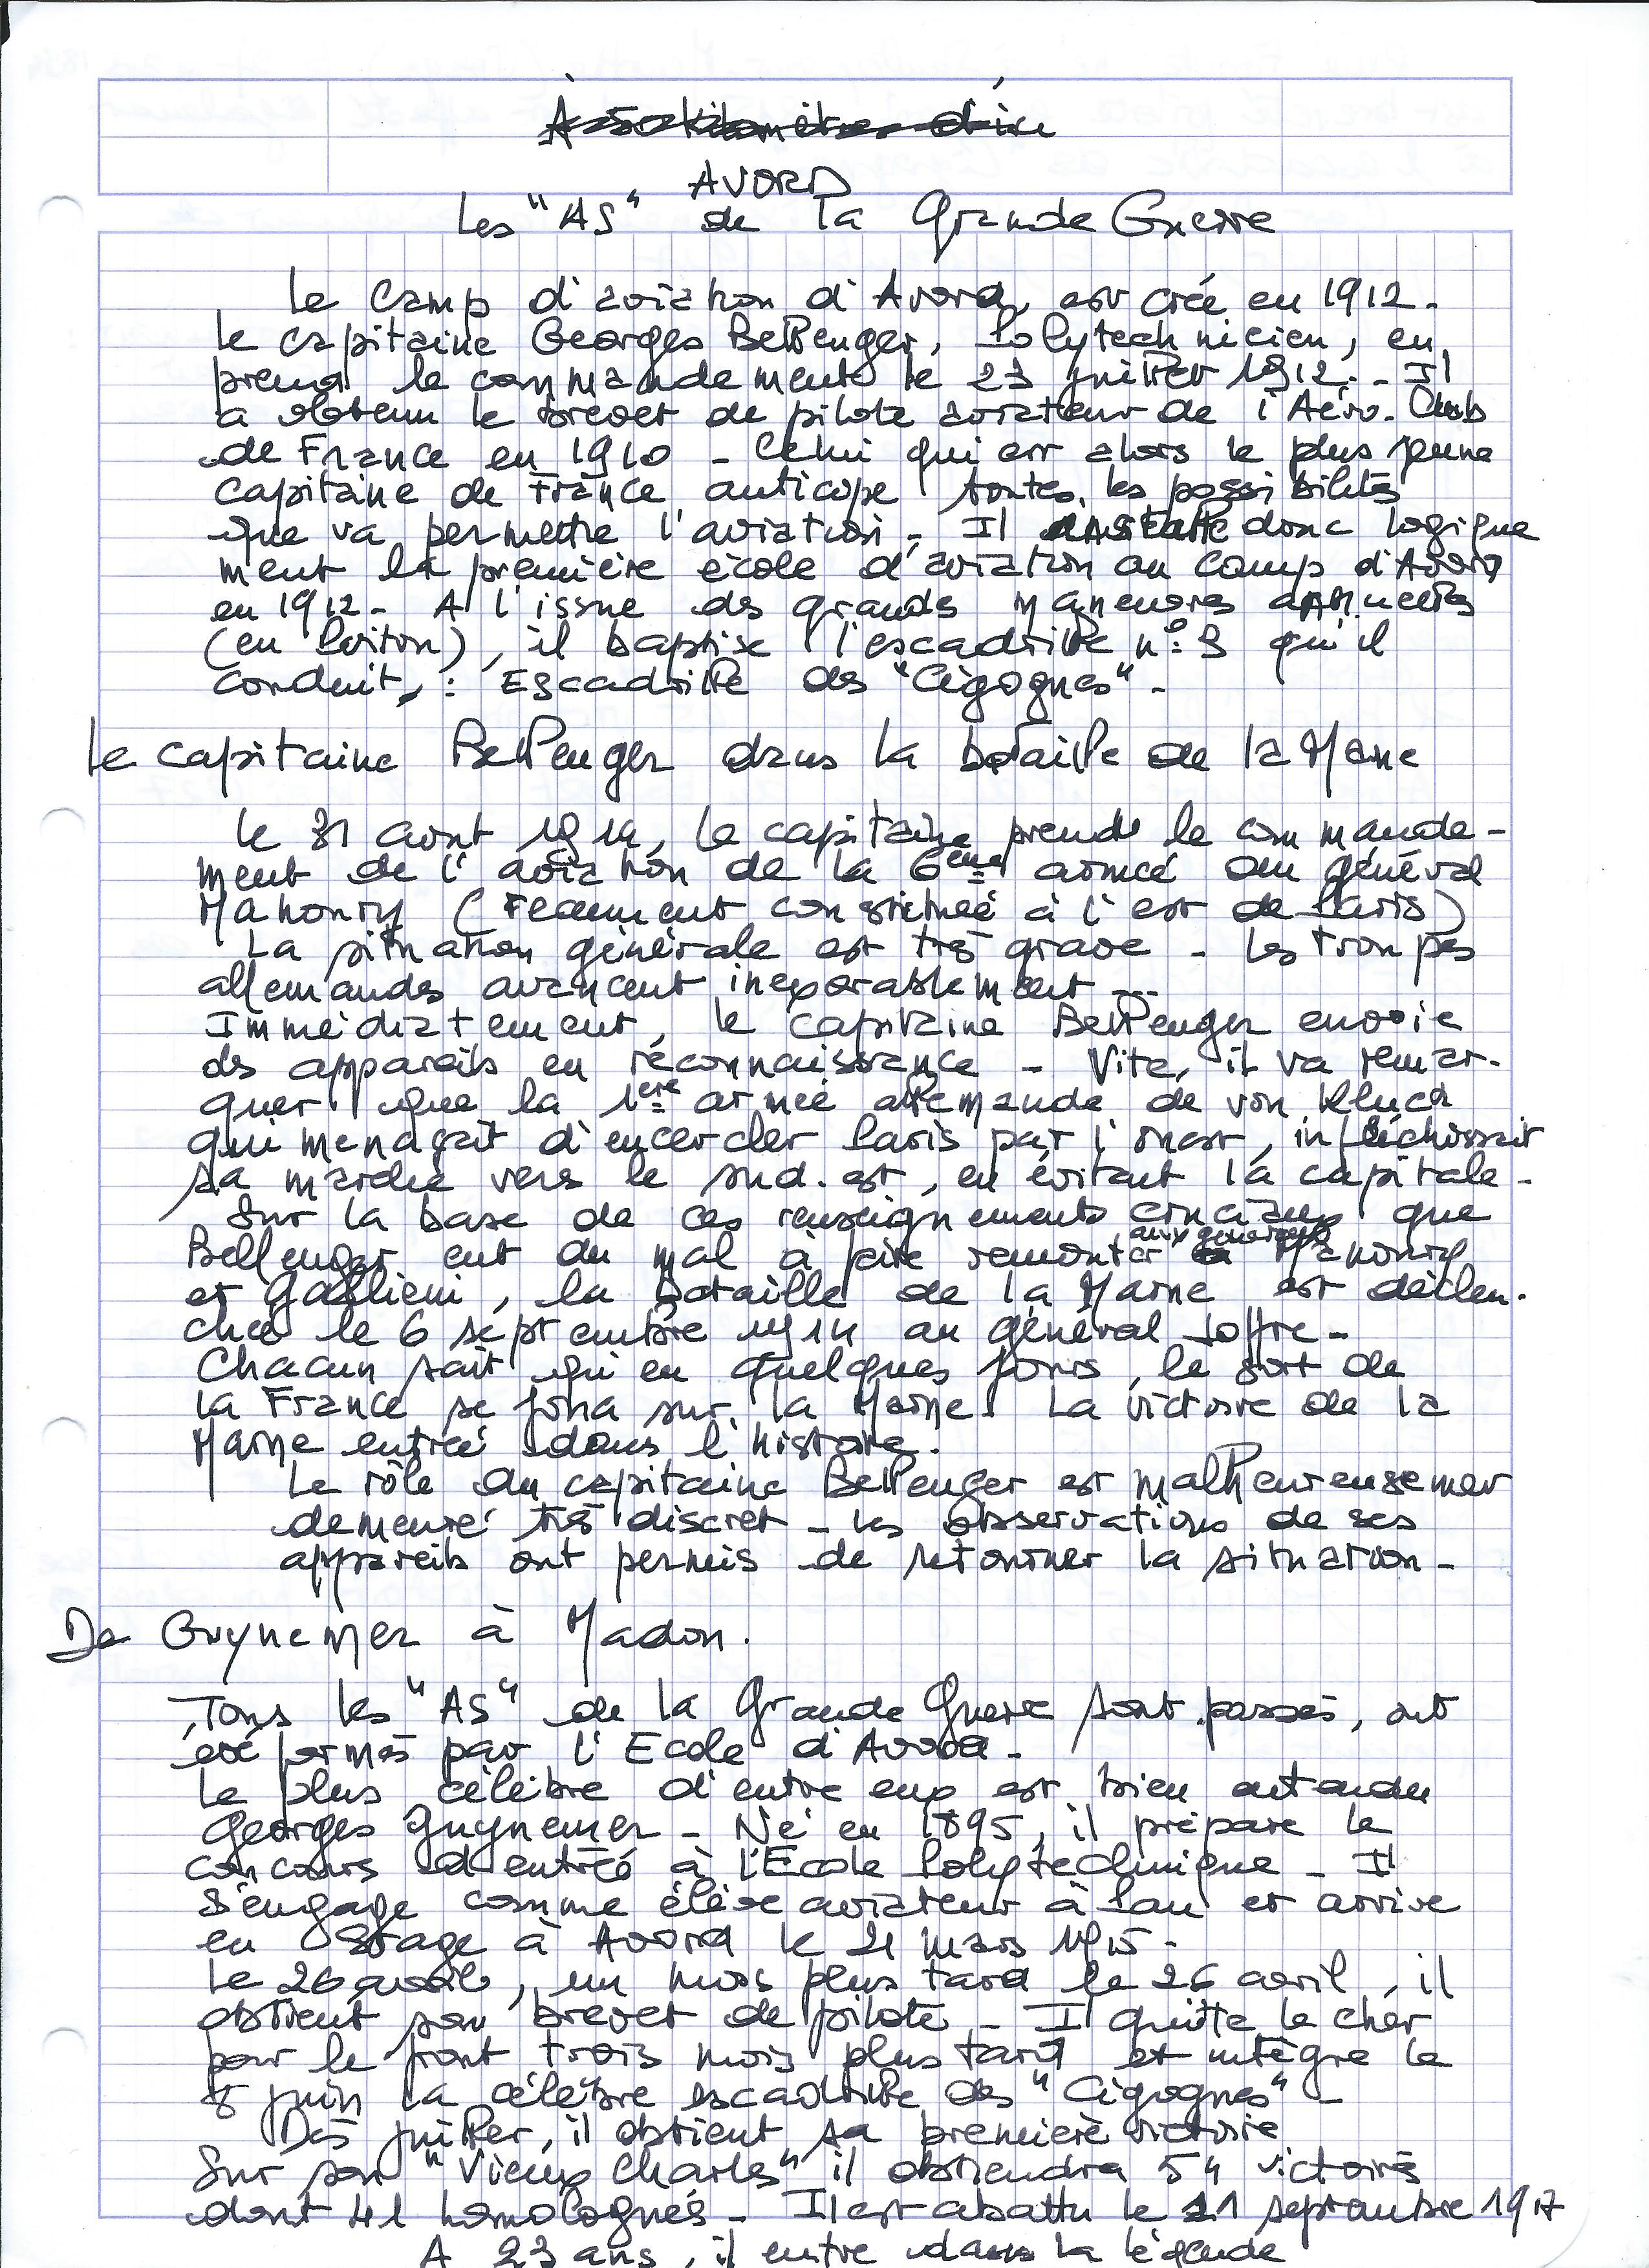 À 50 kilomètres d'ici
AVORD
Les "AS" de la Grande Guerre
Le Camp d'aviation d'Avord, est créé en 1912.
Le capitaine Georges Bellenger, Polytechnicien, en
prend le commandement le 23 juillet 1912. - Il
a obtenu le brevet de pilote aviateur de l'Aéro-Club
de France en 1910 - Celui qui est alors le plus jeune
capitaine de France anticipe toutes les possibilités
que va permettre l'aviation - Il installe donc logique
ment la première école d'aviation au camp d'Avord
en 1912 - A l'issue des grandes manœuvres annuelles
(en Poitou), il baptise l'escadrille n° 3 qu'il
conduit, : Escadrille des "Cigognes" -
Le capitaine Bellenger dans la bataille de la Marne
Le 31 août 1914, le capitaine prend le commande-
ment de l'aviation de la 6ème armée du général
Maunoury ( constituée à l'est de Paris)
La situation générale est très grave - Les troupes
allemandes avancent inexorablement ...
Immédiatement, le capitaine Bellenger envoie
des appareils en reconnaissance - Vite, il va remar-
quer que la 1ère armée allemande de von Kluck
qui menaçait d'encercler Paris par l'ouest, infléchissait
sa marche vers le sud-est, en évitant la capitale -
Sur la base de ces renseignements cruciaux que
Bellenger eut du mal à faire remonter aux généraux Manoury
et Gallieni, la bataille de la Marne est déclen-
chée le 6 septembre 1914 au général Joffre -
Chacun sait qu'en quelques jours, le sort de
la France se joua sur la Marne. La victoire de la
Marne entrée dans l'histoire.
Le rôle du capitaine Bellenger est malheureusement
demeuré très discret - Les observations de ses
appareils ont permis de retourner la situation -
De Guynemer à Madon.
Tous les "AS" de la Grande Guerre sont passés, ont
été formés par l'Ecole d'Avord -
Le plus célèbre d'entre eux est bien entendu
Georges Guynemer - Né en 1895, il prépare le
concours d'entrée à l'Ecole Polytechnique - Il
s'engage comme élève aviateur à Pau et arrive
en stage à Avord le 21 mars 1915 -
Le 26 avril, un mois plus tard le 26 avril, il
obtient son brevet de pilote - Il quitte le Cher
pour le front trois mois plus tard et intègre le
8 juin la célèbre escadrille des "Cigognes" -
Dès juillet, il obtient sa première victoire
Sur son "Vieux Charles" il obtiendra 54 victoires
dont 41 homologués - Il est abattu le 11 septembre 1917
A 23 ans, il entre dans la légende